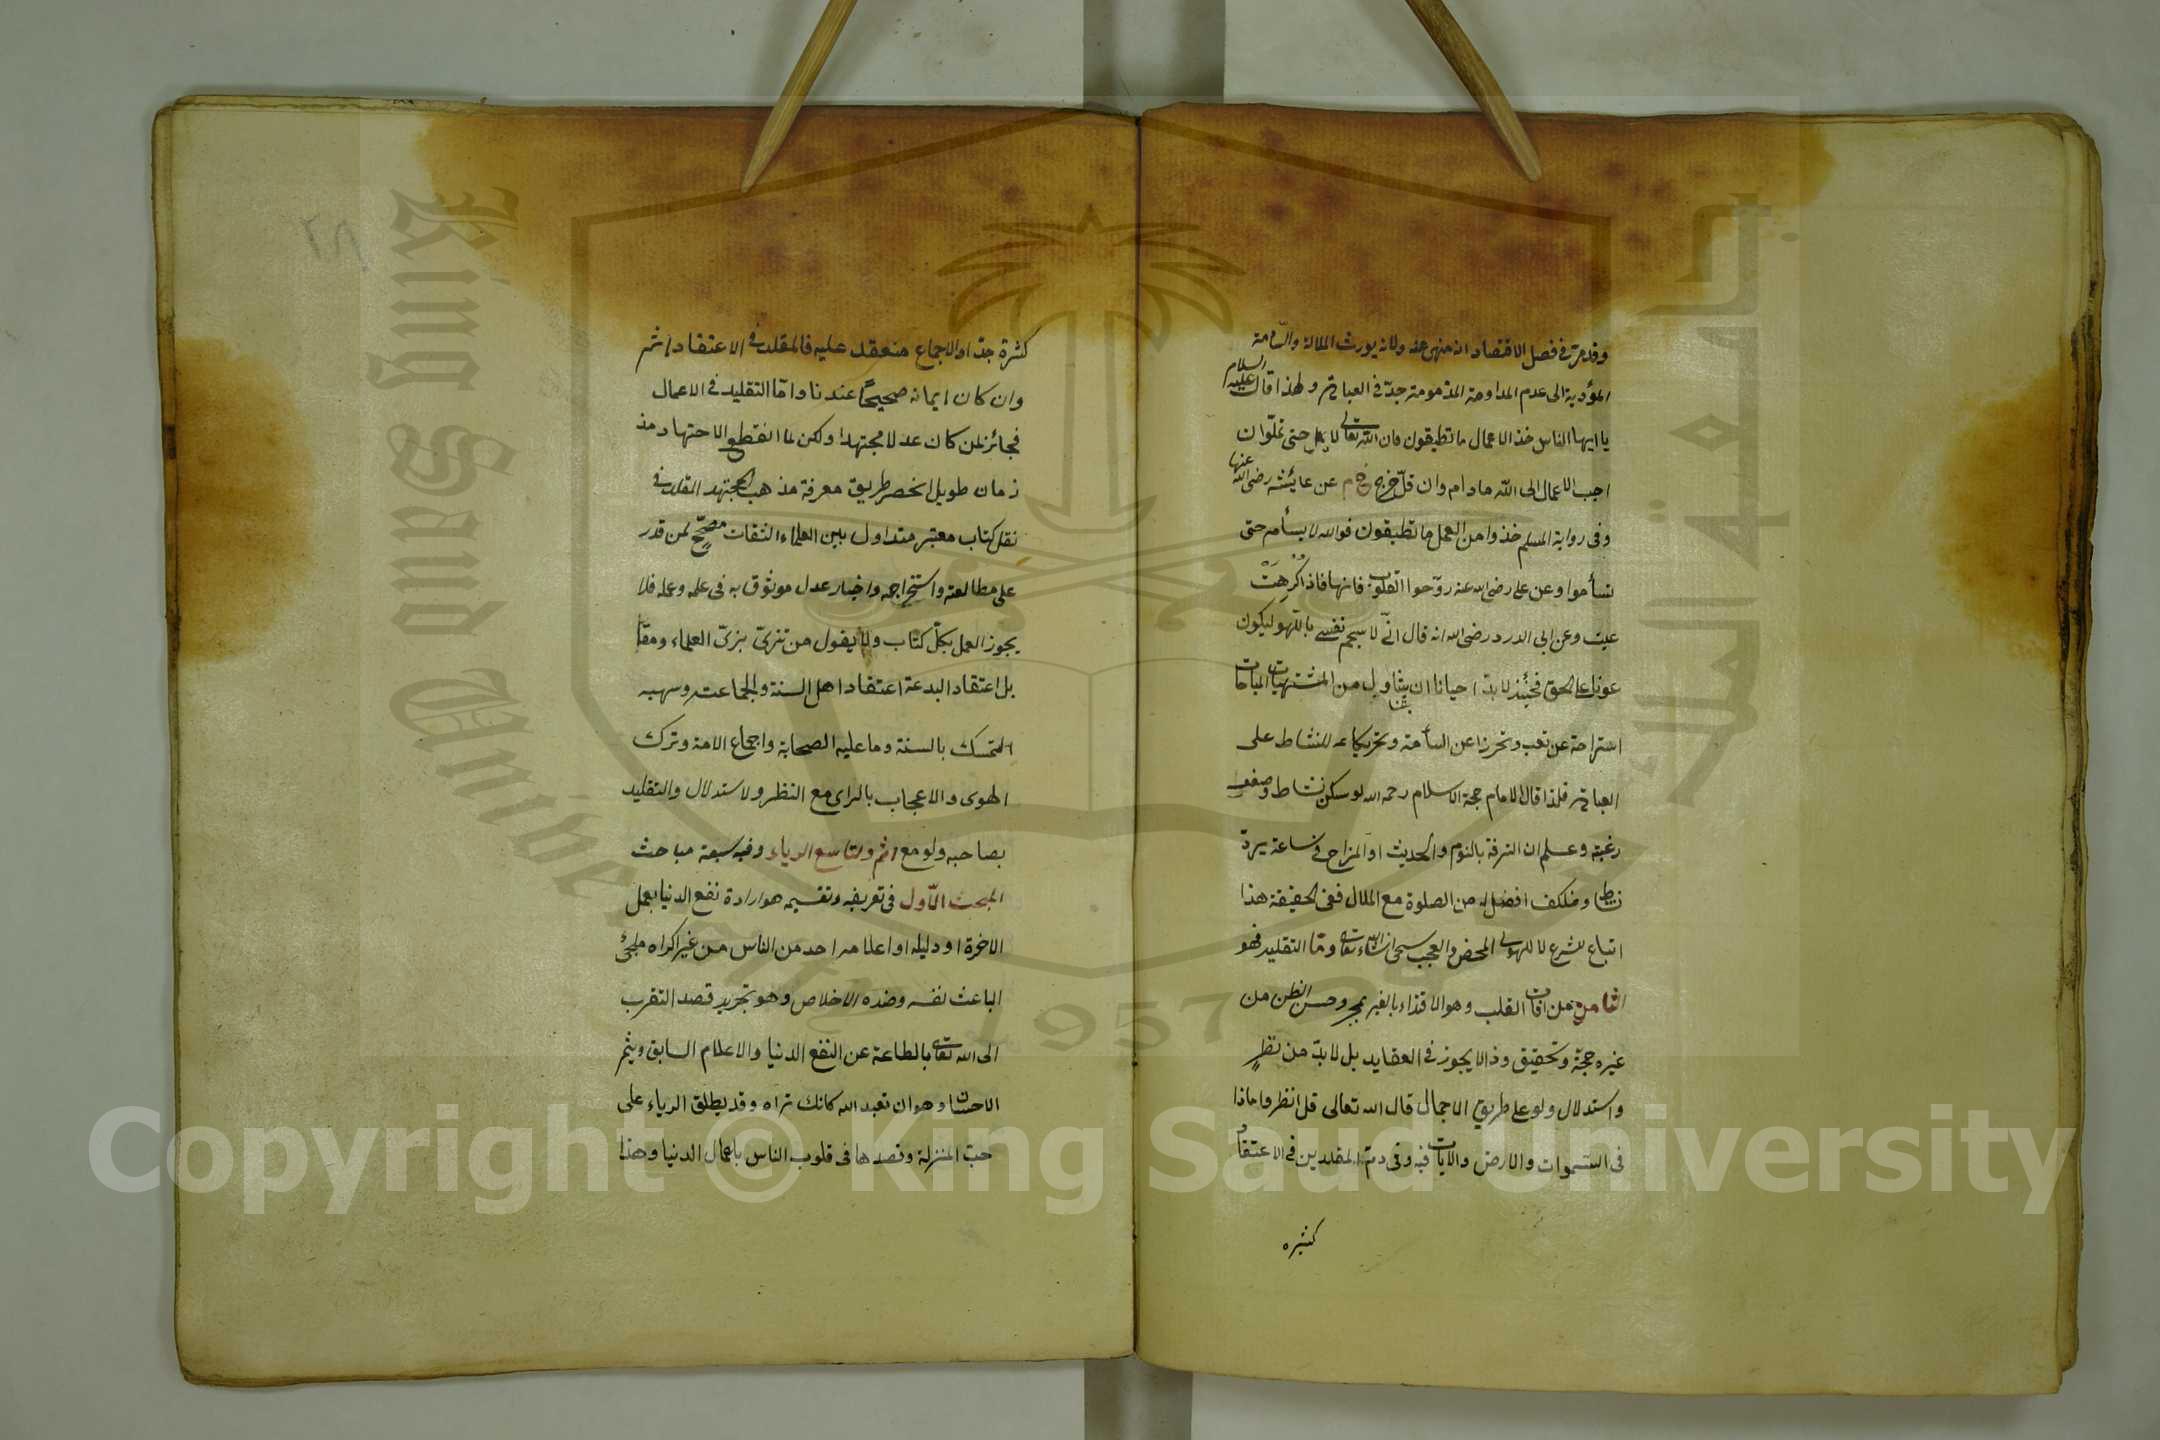 وقد مرّ في فصل الاقتصاد انه منهى عنه ولانه يورث الملالة والسّامة
المؤدية الى عدم المداومة المذمومة جدّ في العبادة ولهذا قال عليه السلام
يا ايها الناس خذ الاعمال ما تطيقون فان الله تعالى لا يمل حتى تملّوا ن
احب الاعمال الى الله ما دام وان قلّ خرج خ م عن عايشه رضى الله عنها
وفى رواية المسلم خذوا من العمل ما تطيقون فوالله لا يسأم حتى
تسأموا وعن على رضى الله عنه روّحوا القلوب فانها فاذا اُكْرِهَتْ
عميت وعن ابى الدرد رضى الله انه قال انّى لاسجم نفسى باللّهو ليكون
عونا على الحق فحينئذ لا بدّ احيانا ان يتناول من المشتهيات المباحات
استراحة عن تعب وتحرزا عن السأمة وتحريكا للنشاط على
العبادة فلذا قال الامام حجة الاسلام رحمه الله لو سكن نشاط وضعف
رغبته وعلم ان الترفة بالنوم والحديث او المزاح في ساعة يردّ
نشاط وذلك افضل له من الصلوة مع الملال ففى الحقيقة هذا
اتباع للشرع لا للهوى المحض والعجب سيجئ انشاء الله تعالى وامّا التقليد فهو
الثامن من افات القلب وهو الاقتداء بالغير بمجرد حسن الظن من
غير حجة وتحقيق وذا لا يجوز في العقايد بل لا بدّ من نظرٍ
واستدلال ولو على طريق الاجمال قال الله تعالى قل انظروا ماذا
فى السّموات والارض والايات فيه وفى ذمّ المقلدين في الاعتقاد
كثيره
٢٨
كثيرة جدّا والاجماع منعقد عليه فالمقلد في الاعتقاد اثم
وان كان ايمانه صحيحًا عندنا وامّا التقليد في الاعمال
فجائز لمن كان عدلا مجتهدا ولكن لما انقطع الاجتهاد مذ
زمان طويل انحصر طريق معرفة مذهب المجتهد المقلد في
نقل كتاب معتبر متداول بين العلماء الثقات مصحّح لمن قدر
على مطالعته واستخراجه واخبار عدل موثوق به فى علمه وعمله فلا
يجوز العمل بكلّ كتاب ولا بقول من تزىّ بزىّ العلماء ومقا
بل اعتقاد البدعة اعتقاد اهل السنة والجماعت وسببه
التمسك بالسنة وما عليه الصحابة واجماع الامة وترك
الهوى والاعجاب بالراى مع النظر والاستدلال والتقليد
بصاحبه ولو مع اثم والتاسع الرياء وفيه سبعة مباحث
المبحث الاّول فى تعريفه وتقسيمه هو ارادة نفع الدنيا بعمل
الاخرة او دليله او اعلامه احد من الناس من غير اكراه ملجئ
الباعث نفسه وضده الاخلاص وهو تجريد قصد التقرب
الى الله تعالى بالطاعة عن النفع الدنيا والاعلام السابق ويثمر
الاحسان وهو ان تعبد الله كانك تراه وقد يطلق الرياء على
حبّ المنزلة وقصدها فى قلوب الناس باعمال الدنيا وهذا
King Saud University
1957
Copyright © King Saud University